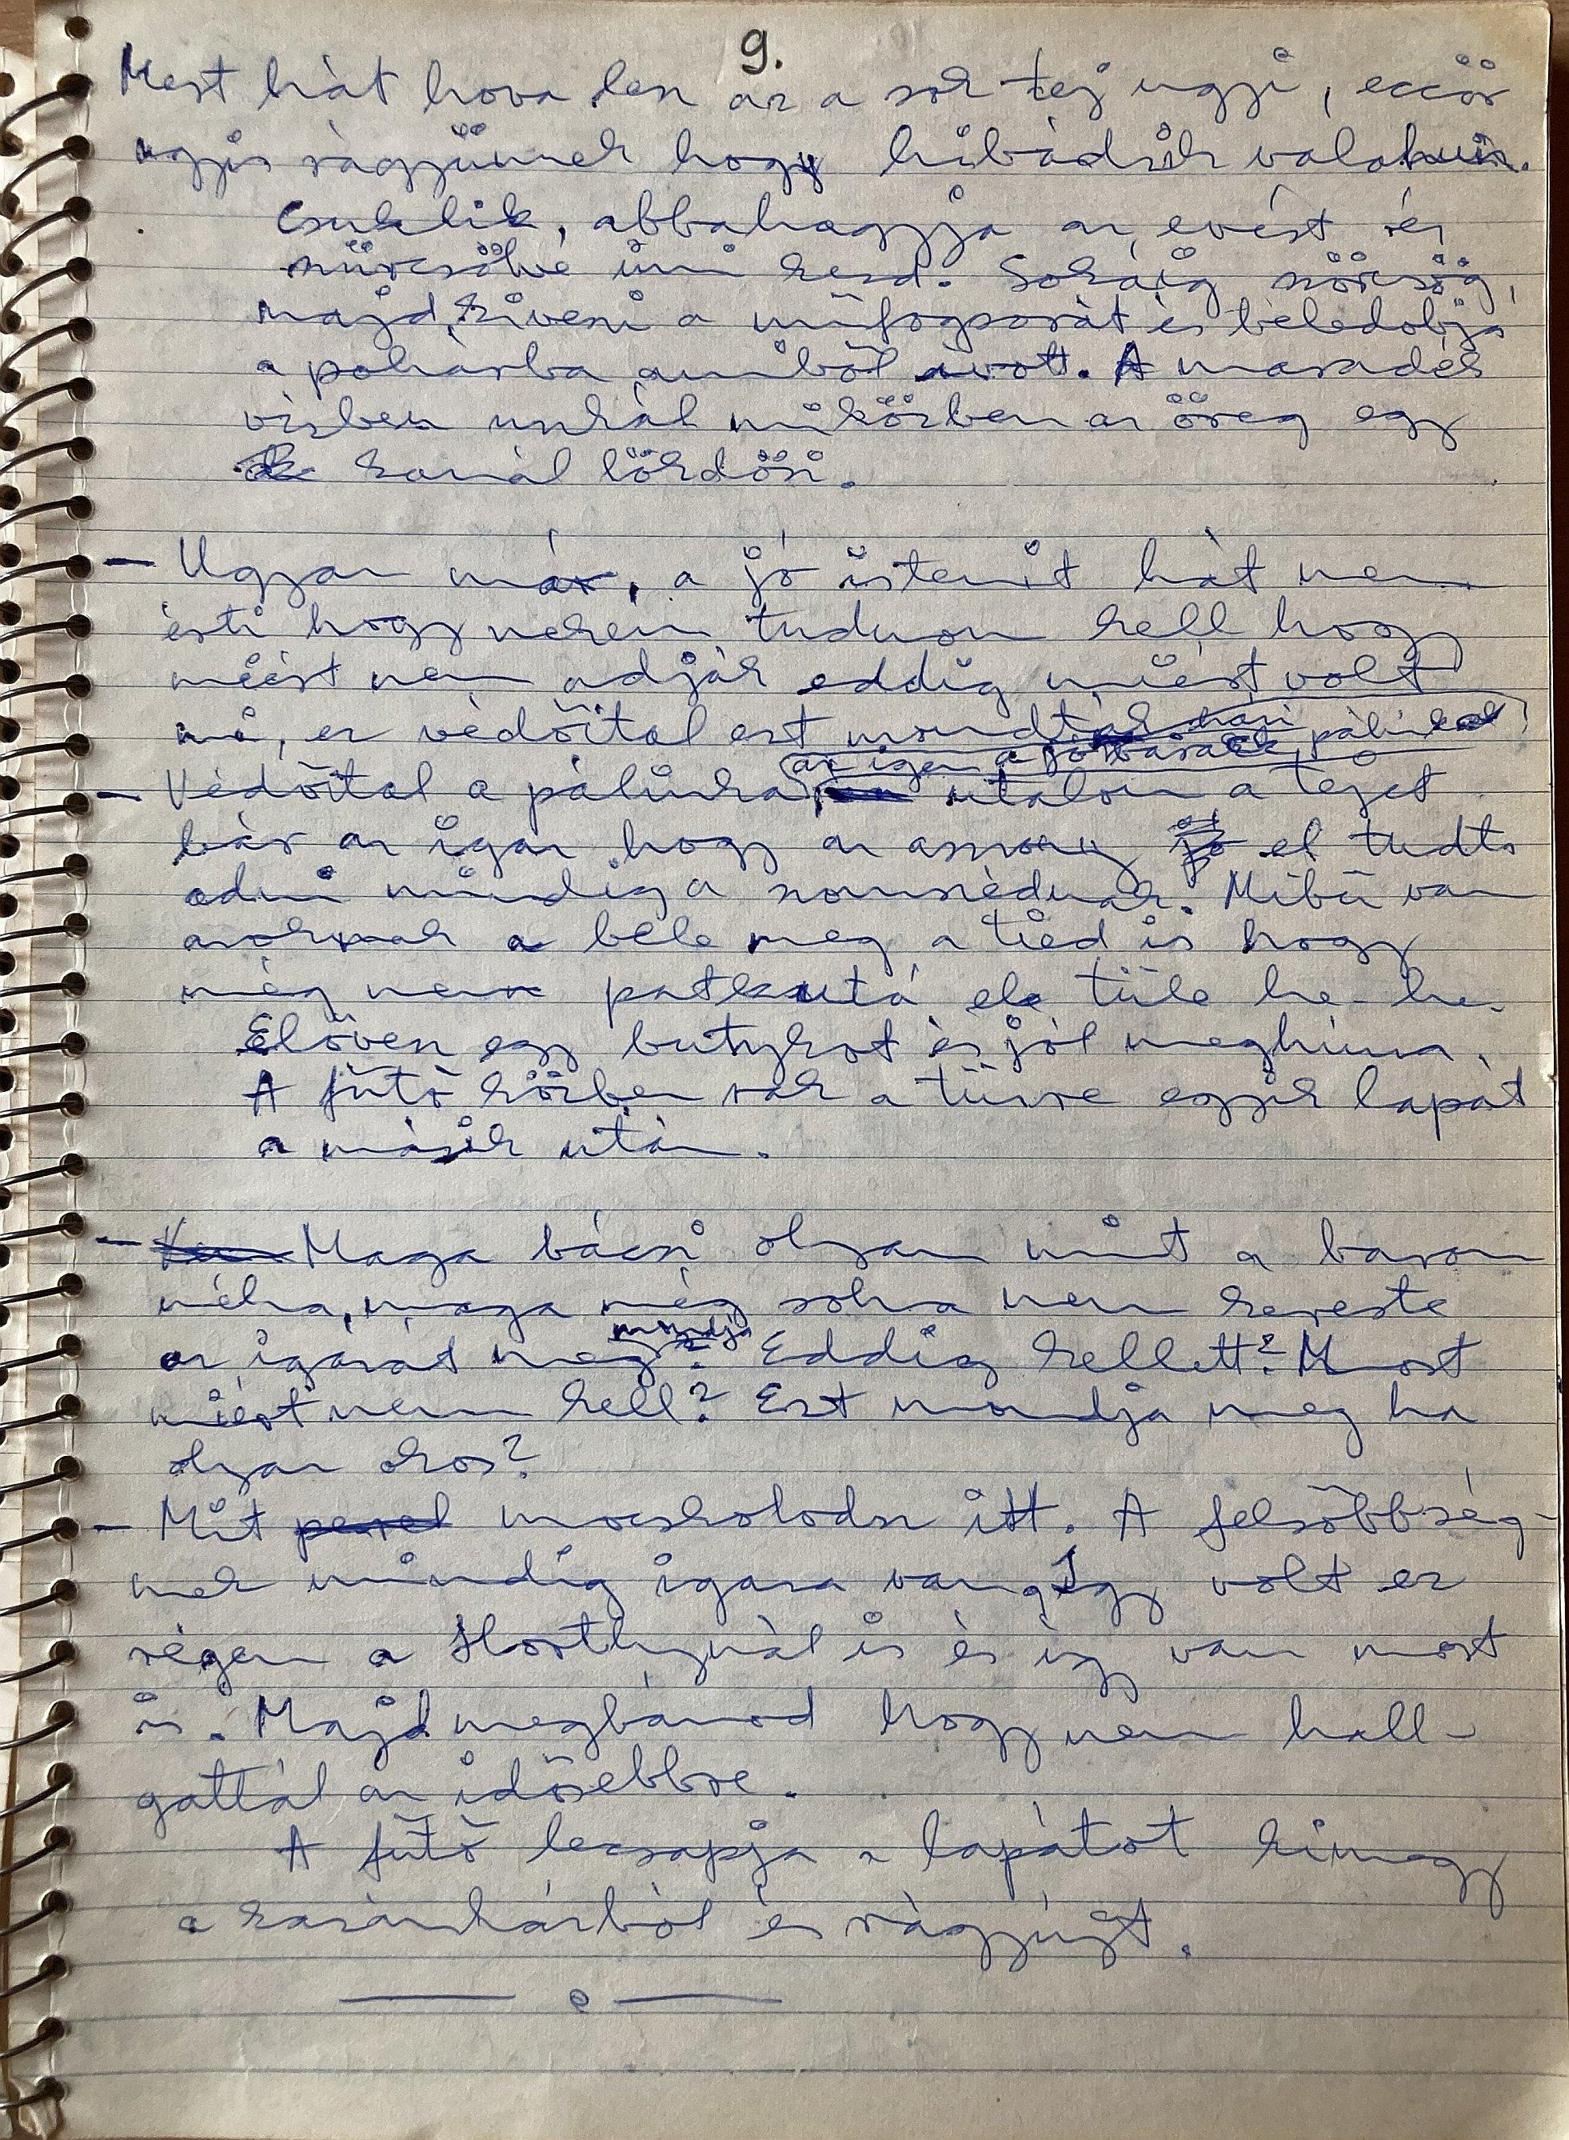 9.
Mert hát hova lesz az a sok tej ugyi, eccör
ugyis rágyünnek hogy hibádzik valakin.
Csuklik, abbahagyja az evést és
szürcsölve inni kezd. Sokáig szörcsög,
majd kiveszi a műfogsorát és beledobja
a pohárba amiből ivott. A maradék
vízben unkál miközben az öreg egy
kanál lökdösi.
- Ugyan már, a jó istenit hát nem
érti hogy nekem tudnom kell hogy
miért nem adják eddig miért volt
mi, ez védőital ezt mondták
az igen a jó barack pálinka!
- Védőital a pálinka, utálom a tejet
bár az igaz hogy az asszony el tudta
adni mindig a szomszédnak. Mibű van
azoknak a bele meg a tied is hogy
még nem patkoltá el tüle he-he.
Elővesz egy butykot és jól meghúzza.
A fűtő közben rak a tűzre egyik lapát
a másik után.
- Maga bácsi olyan mint a barom
néha, maga még soha nem kereste
az igazát meg mondja? Eddig kellett? Most
miért nem kell? Ezt mondja meg ha
olyan okos?
- Mit mocskolodsz itt. A felsőbbség-
nek mindig igaza van, Így volt ez
régen a Horthynál is és így van most
is. Majd megbánod hogy nem hall-
gattál az idősebbre.
A fűtő lecsapja a lapátot kimegy
a kazánházból és rágyújt.